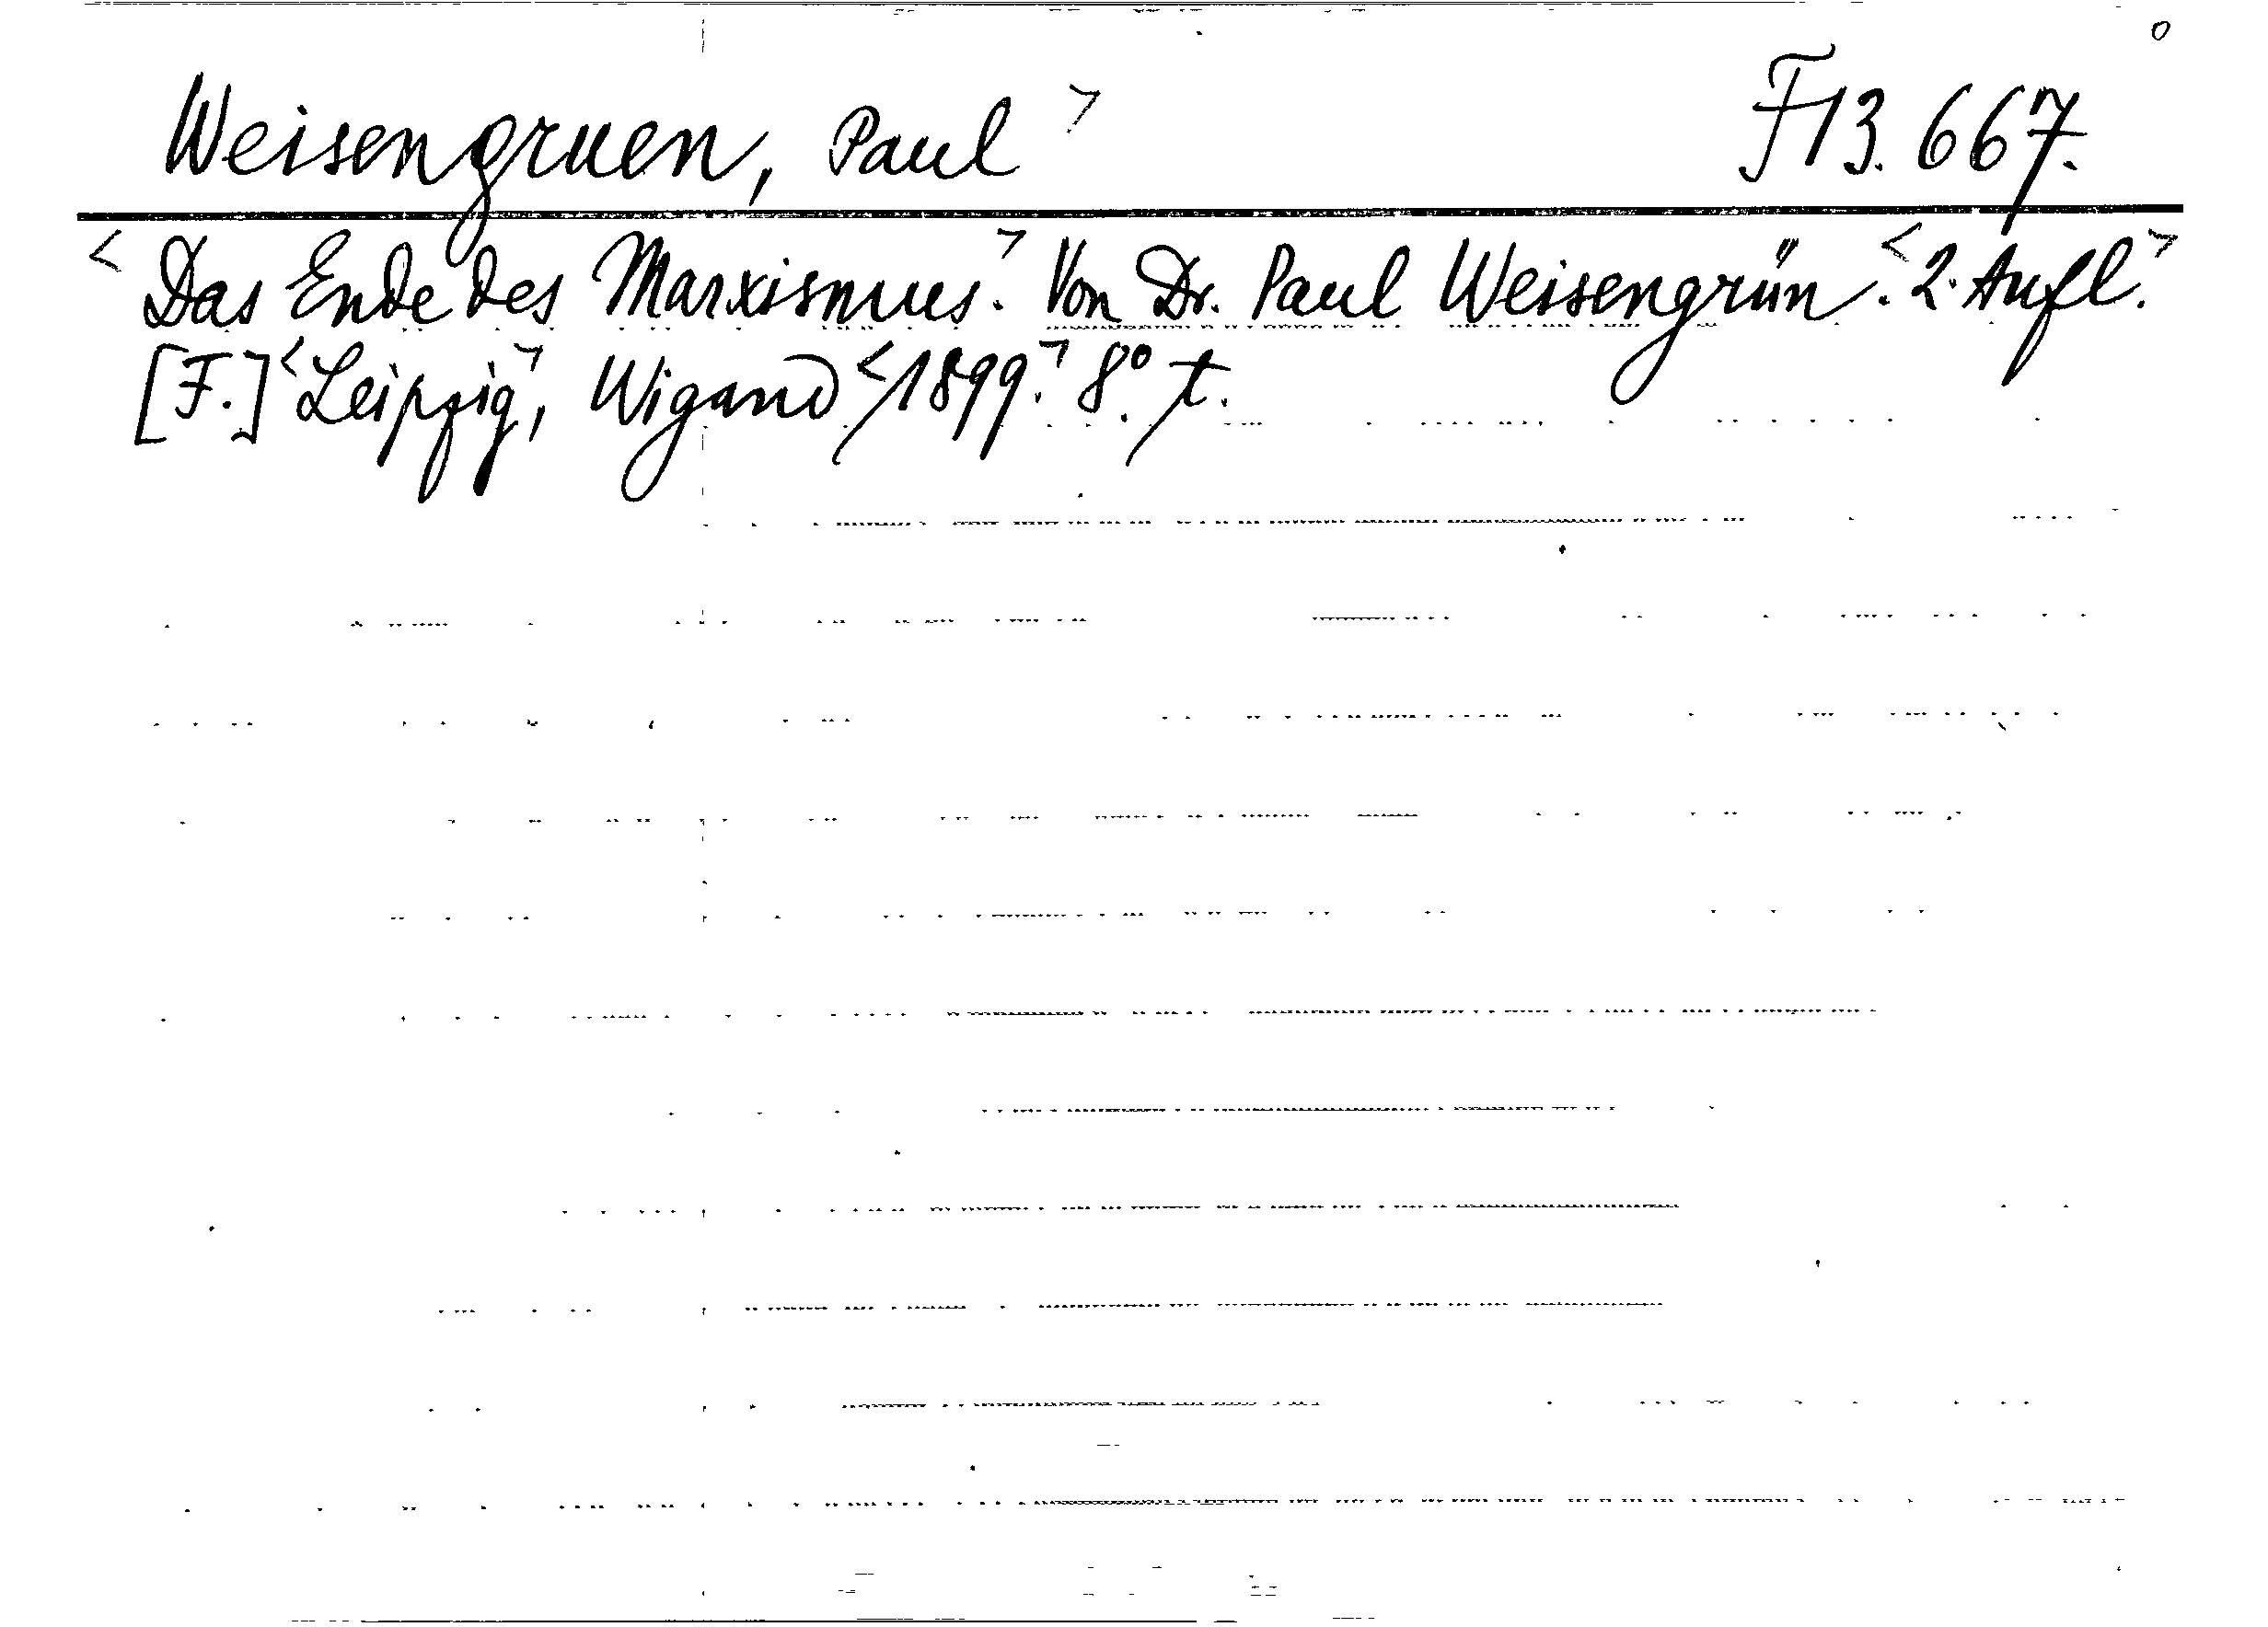 Weisengruen, Paul > F 13.667.
< Das Ende des Marxismus.> Von Dr. Paul Weisengrün.<2. Aufl.>
[F.] <Leipzig>, Wigand <1899.> 8°. t.